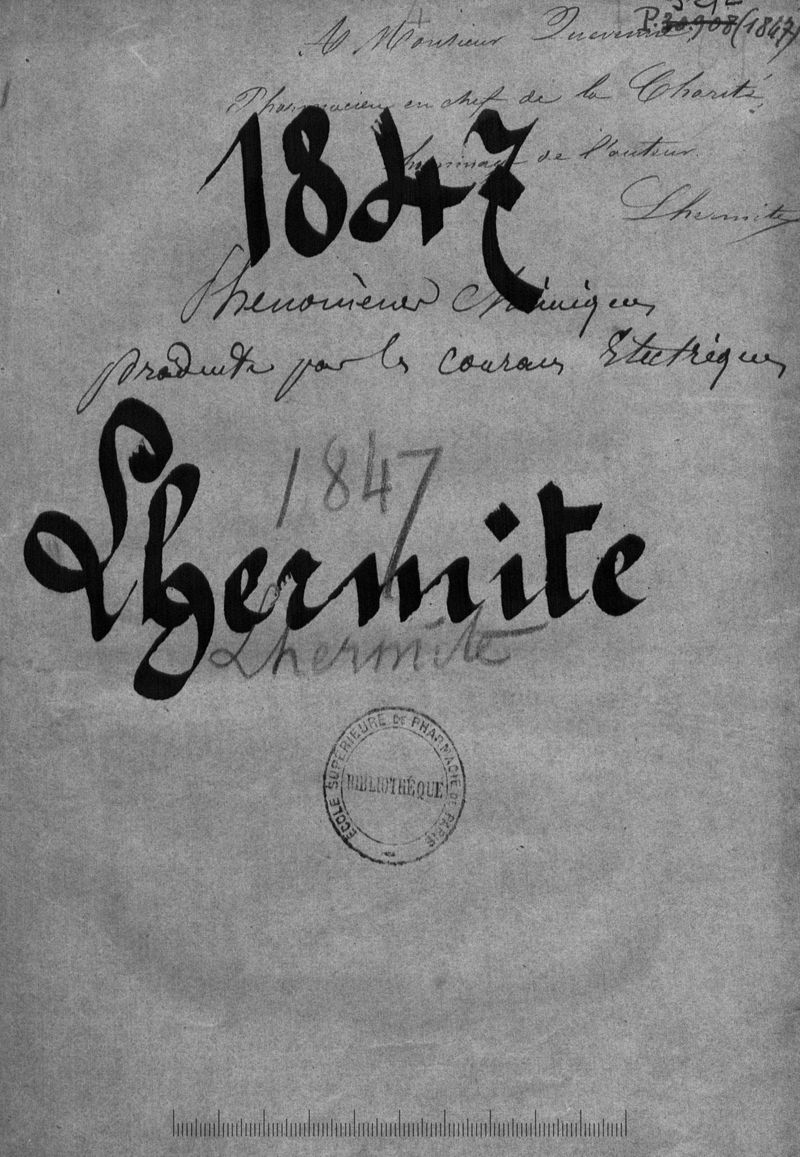 P. 30.908 (1847)
A Monsieur Quevenne
Pharmacien en chef de la Charité,
hommage de l'auteur.
Lhermite
1847
Phénomènes Chimiques
produits par les courans Electriques
1847
Lhermite
Lhermite
ECOLE SUPERIEURE DE PHARMACIE DE PARIS
BIBLIOTHÈQUE